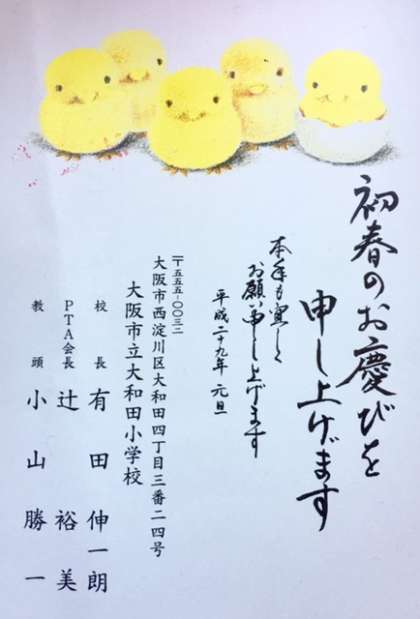 初春のお慶びを
申し上げます
本年も宜しく
お願い申し上げます
平成二十九年 元旦
〒五五五-〇〇三二
大阪市西淀川区大和田四丁目三番二四号
大阪市立大和田小学校
校長 有田伸一朗
PTA会長 辻裕美
教頭 小山勝一